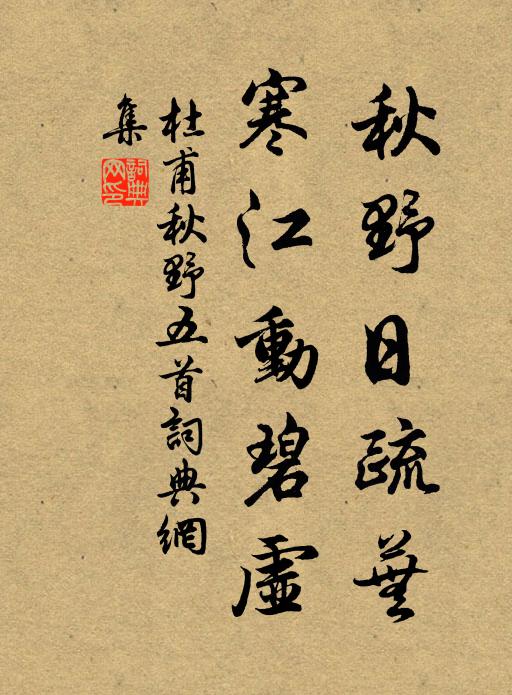 秋野日疏蕪
寒江動碧虛
杜甫秋野五首詞典網
集
詞典
网印